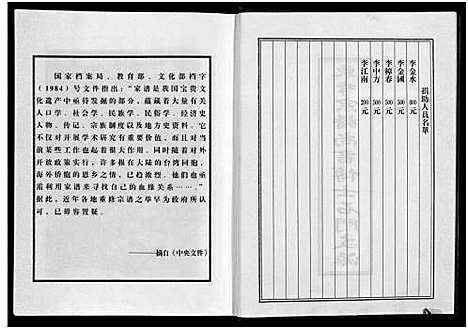 国家档案局、教育部、文化部档字
（1984）号文件指出："家谱是我国宝贵文
化遗产中亟待发掘的部分，蕴藏着大量有关
人口学、社会学、民族学、民俗学、经济史
人物、传记、宗族制度以及地方史资料。它
不仅对开展学术研究有重要价值，而且对当
前某些工作也起着很大作用。同时随着对外
开放政策实行，许多根在大陆的台湾同胞，
海外侨胞的恳乡之情，已趋浓烈。他们也重
利用家谱来寻找自己的血缘关系……。"
据此，近年各地重修宗谱之举早为政府所认
可，已毋容置疑。
——摘自《中央文件》
捐助人員名單
李金水 800元
李金國 500元
李樟春 500元
李中方 500元
李江南 200元